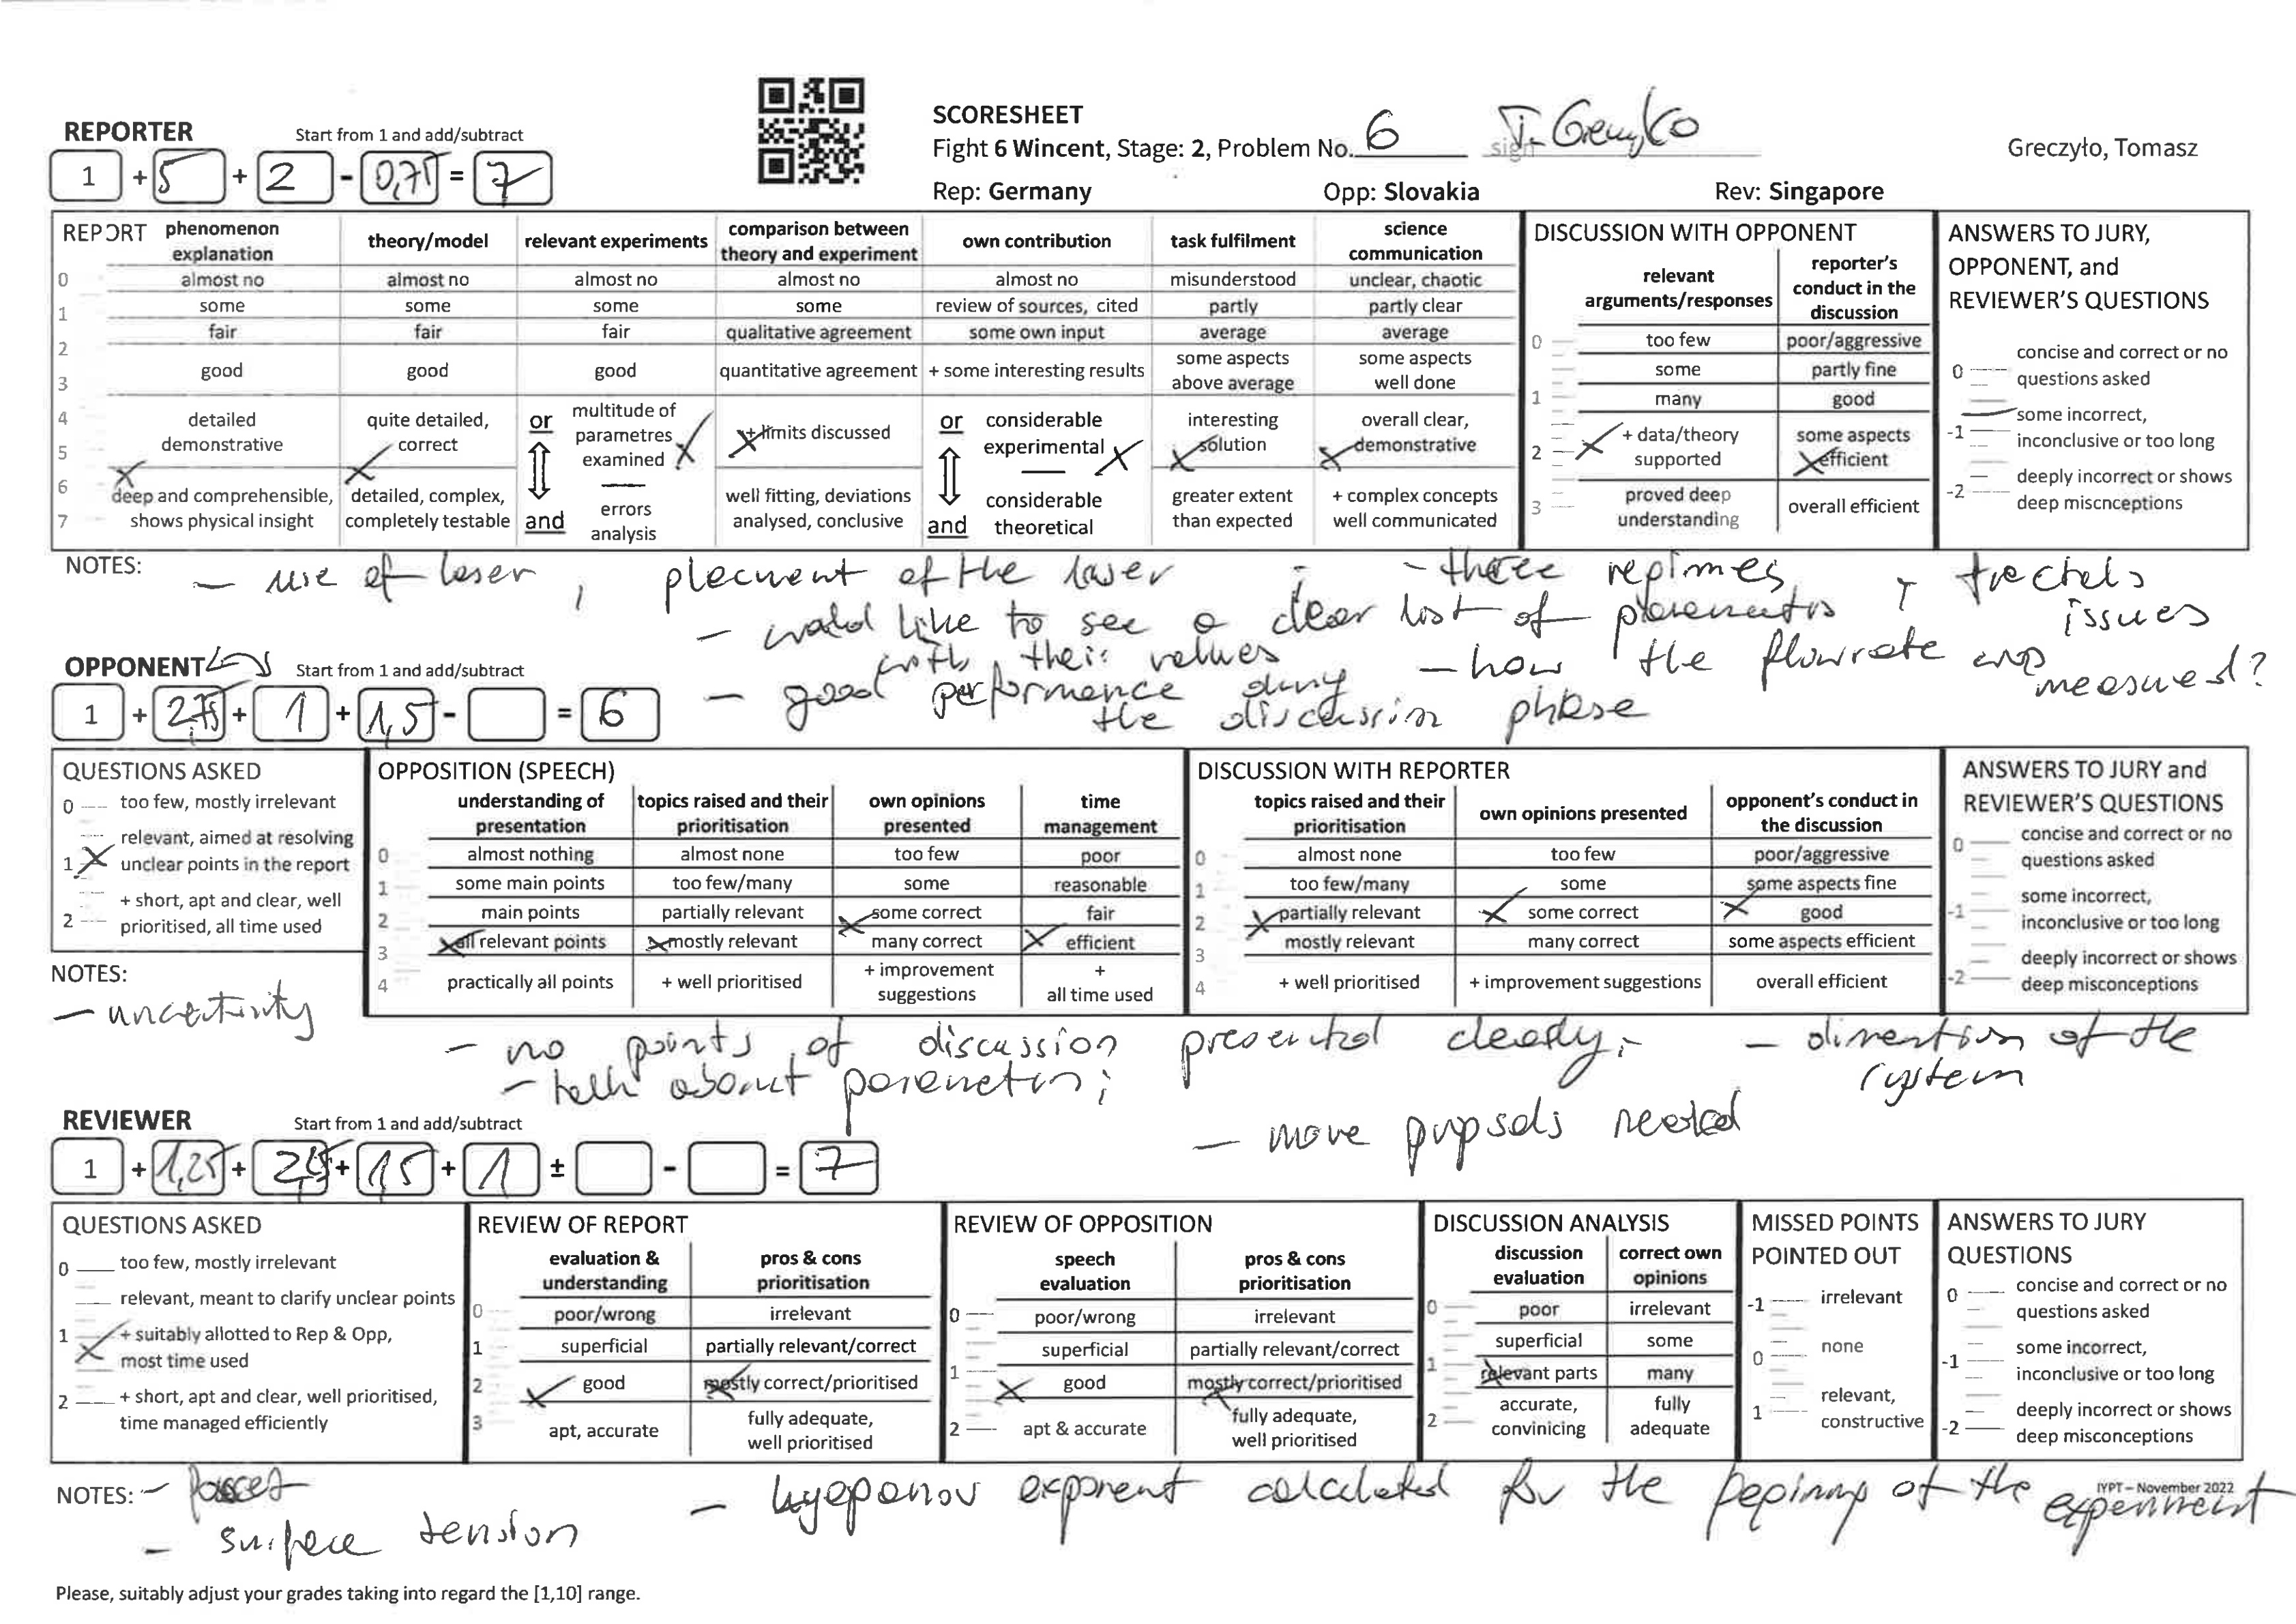 SCORESHEET
Fight 6 Wincent, Stage: 2, Problem No. 6
sign
Greczyło, Tomasz
Rep: Germany Opp: Slovakia Rev: Singapore
REPORTER Start from 1 and add/subtract
1 + 5 + 2 - 0,75 = 7
REPORT
phenomenon explanation theory/model relevant experiments comparison between theory and experiment own contribution task fulfilment science communication
0 almost no almost no almost no almost no almost no misunderstood unclear, chaotic
1 some some some some review of sources, cited partly partly clear
2 fair fair fair qualitative agreement some own input average average
3 good good good quantitative agreement + some interesting results some aspects above average some aspects well done
4 5 detailed demonstrative quite detailed, correct or multitude of parametres examined + limits discussed or considerable experimental interesting solution overall clear, demonstrative
6 7 deep and comprehensible, shows physical insight detailed, complex, completely testable and errors analysis well fitting, deviations analysed, conclusive and considerable theoretical greater extent than expected + complex concepts well communicated
DISCUSSION WITH OPPONENT
relevant arguments/responses reporter's conduct in the discussion
0 too few poor/aggressive
some partly fine
1 many good
2 + data/theory supported some aspects efficient
3 proved deep understanding overall efficient
ANSWERS TO JURY, OPPONENT, and REVIEWER'S QUESTIONS
0 concise and correct or no questions asked
-1 some incorrect, inconclusive or too long
-2 deeply incorrect or shows deep miscnceptions
NOTES: - use of laser, plecment of the laser ; - three regimes,
issues
- would like to see a clear list of
with their values - how the flowrate was measured?
- good performance during the discussion phase
OPPONENT Start from 1 and add/subtract
1 + 2,75 + 1 + 1,5 - = 6
QUESTIONS ASKED
0 too few, mostly irrelevant
1 relevant, aimed at resolving unclear points in the report
2 + short, apt and clear, well prioritised, all time used
OPPOSITION (SPEECH)
understanding of presentation topics raised and their prioritisation own opinions presented time management
0 almost nothing almost none too few poor
1 some main points too few/many some reasonable
2 main points partially relevant some correct fair
3 all relevant points mostly relevant many correct efficient
4 practically all points + well prioritised + improvement suggestions + all time used
DISCUSSION WITH REPORTER
topics raised and their prioritisation own opinions presented opponent's conduct in the discussion
0 almost none too few poor/aggressive
1 too few/many some some aspects fine
2 partially relevant some correct good
3 mostly relevant many correct some aspects efficient
4 + well prioritised + improvement suggestions overall efficient
ANSWERS TO JURY and REVIEWER'S QUESTIONS
0 concise and correct or no questions asked
-1 some incorrect, inconclusive or too long
-2 deeply incorrect or shows deep misconceptions
NOTES:
- no points of discussion presented clearly; - of the system
- talk about
- more needed
REVIEWER Start from 1 and add/subtract
1 + 1,25 + + 1,5 + 1 ± - = 7
QUESTIONS ASKED
0 too few, mostly irrelevant
relevant, meant to clarify unclear points
1 + suitably allotted to Rep & Opp, most time used
2 + short, apt and clear, well prioritised, time managed efficiently
REVIEW OF REPORT
evaluation & understanding pros & cons prioritisation
0 poor/wrong irrelevant
1 superficial partially relevant/correct
2 good mostly correct/prioritised
3 apt, accurate fully adequate, well prioritised
REVIEW OF OPPOSITION
speech evaluation pros & cons prioritisation
0 poor/wrong irrelevant
superficial partially relevant/correct
1 good mostly correct/prioritised
2 apt & accurate fully adequate, well prioritised
DISCUSSION ANALYSIS
discussion evaluation correct own opinions
0 poor irrelevant
superficial some
1 relevant parts many
2 accurate, convinicing fully adequate
MISSED POINTS POINTED OUT
-1 irrelevant
0 none
1 relevant, constructive
ANSWERS TO JURY QUESTIONS
0 concise and correct or no questions asked
-1 some incorrect, inconclusive or too long
-2 deeply incorrect or shows deep misconceptions
NOTES: - exponent calculated for the of the experiment
- surface tension
IYPT – November 2022
Please, suitably adjust your grades taking into regard the [1,10] range.